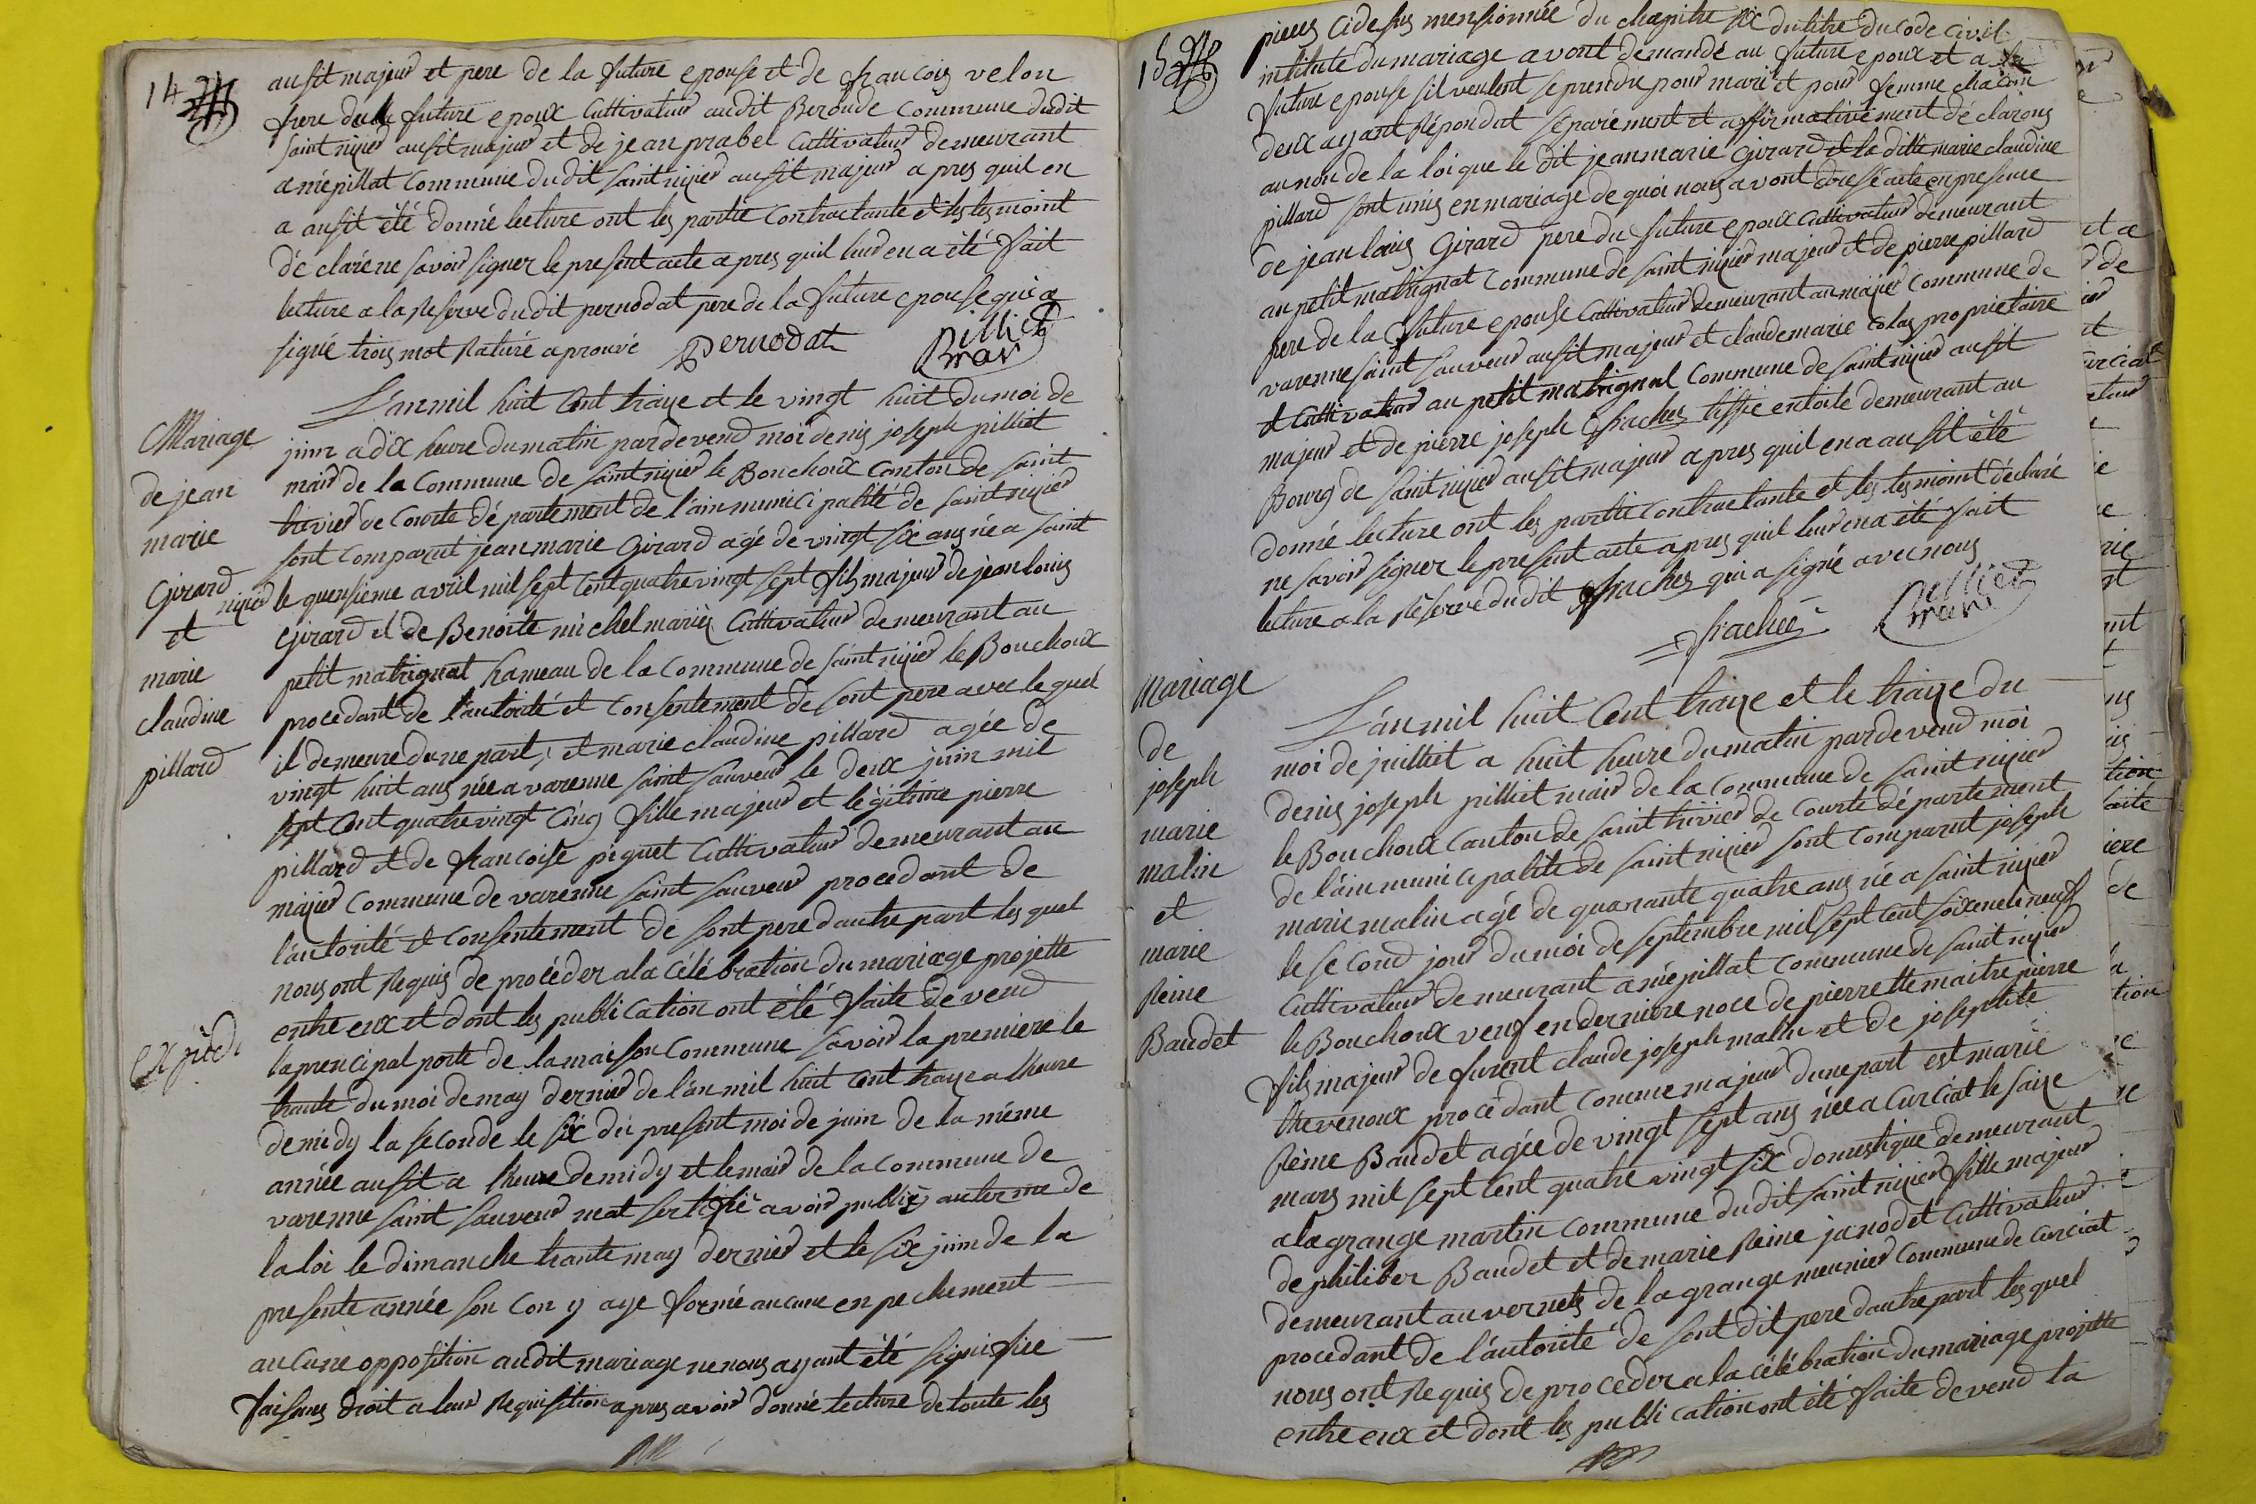 14
ausit majeur et pere de la future epouse et de francois velon
frere de la future epoux Cultivateur audit Beroude Commune dudit
saint nizier ausit majeur et de jean prabel Cultivateur demeurant
a mépillat Commune du dit saint nizier ausit majeur apres quil en
a ausit été donné lecture ont les partie Contractante et les tesmoint
dé claré ne savoir signer le present acte apres quil leur en a été fait
lecture a la Reserve du dit pernodat pere de la future epouse qui a
signé trois mot Raturé aprouvé Pernodat pilliet mair
Mariage
de jean
marie
Girard
et
marie
claudine
pillard
expédi
L'an mil huit Cent traize et le vingt huit du moi de
juin a dix heure du matin pardevend moi denis joseph pilliet
mair de la Commune de saint nizier le Bouchoux Canton de saint
trivier de Courte dé partement de l'ain municipalité de saint nizier
sont comparut jean marie Girard agé de vingt six ans née a saint
nizier le quensieme avril mil sept Cent quatre vingt sept fils majeur de jean louis
Girard et de Benoite michel mariés Cultivateur demeurant au
petit matrignat hameau de la Commune de saint nizier le Bouchoux
procedant de l'autorité et Consentement de sont pere avec le quel
il demeure dune part, et marie claudine pillard agée de
vingt huit ans née a varenne saint sauveur le deux juin mil
sept Cent quatre vingt Cinq fille majeur et légitime pierre
pillard et de francoise piguet Cultivateur demeurant au
majier Commune de varenne saint sauveur procedant de
l'autorité et Consentement de sont pere dautre part les quel
nous ont Requis de procéder a la Célébration du mariage projetté
entre eux et dont les publication ont été faite devend
la prencipal porte de la maison Commune savoir la premiere le
trante du moi de may dernier de l'an mil huit Cent traize a lheure
de midy la seconde le six du present moi de juin de la méme
année ausit a lheure de midy et le mair de la Commune de
varenne saint sauveur mat sertifié avoir publié au terme de
la loi le dimanche trante may dernier et le six juin de la
presente année son Con y aye formé aucune enpechement
aucune opposition audit mariage ne nous ayant été signifiée
faisans droit a leur Requisition apres avoir donné lecture de toute les
15
pieces Cidessus mensionnée du chapitre six du titre du Code Civil
intitulé du mariage avont demandé au future epoux et a la
future epouse sil veulent se prendre pour mari et pour femme chacun
deux ayant Répondut séparément et affirmativement dé clarons
au non de la loi que le dit jean marie Girard et la ditte marie claudine
pillard sont unis en mariage de quoi nous avont dressé acte en presence
de jean louis Girard pere du future epoux Cultivateur demeurant
au petit matrignat Commune de saint nizier majeur et de pierre pillard
pere de la future epouse Cultivateur demeurant au majier Commune de
varenne saint sauveur ausit majeur et claude marie Colas proprietaire
et Cultivateur au petit matrignat Commune de saint nizier ausit
majeur et de pierre joseph frachez tissie en toile demeurant au
Bourg de saint nizier ausit majeur apres quil en a ausit été
donné lecture ont les partie Contractante et les tesmoint déclaré
ne savoir signer le present acte apres quil leur en a été fait
lecture a la Réserve du dit frachez qui a signé avec nous
frachée pilliet mair
Mariage
de
joseph
marie
malin
et
marie
Reine
Baudet
L'an mil huit Cent traize et le traize du
moi de juilliet a huit heure du matin pardevend moi
denis joseph pilliet mair de la Commune de saint nizier
le Bouchoux Canton de saint trivier de Courte dé partement
de l'ain municipalité de saint nizier sont Comparut joseph
marie malin agé de quarante quatre ans né a saint nizier
le second jour du moi de septembre mil sept Cent soixente neuf
Cultivateur demeurant a mépillat Commune de saint nizier
le Bouchoux veuf en derniere noce de pierrette maitrepierre
fils majeur de furent claude joseph malin et de josephte
thevenoux procédant Comme majeur dune part est marie
Réine Baudet agée de vingt sept ans née a Curciat le saize
mars mil sept Cent quatre vingt six domestique demeurant
a la grange martin Commune du dit saint nizier fille majeur
de philiber Baudet et de marie Reine janodet Cultivateur
demeurant au vernets de la grange meunier Commune de Curciat
procedant de l'autorité de sont dit pere dautre part les quel
nous ont Requis de proceder a la célébration du mariage projetté
entre eux et dont les publication ont été faite devend la